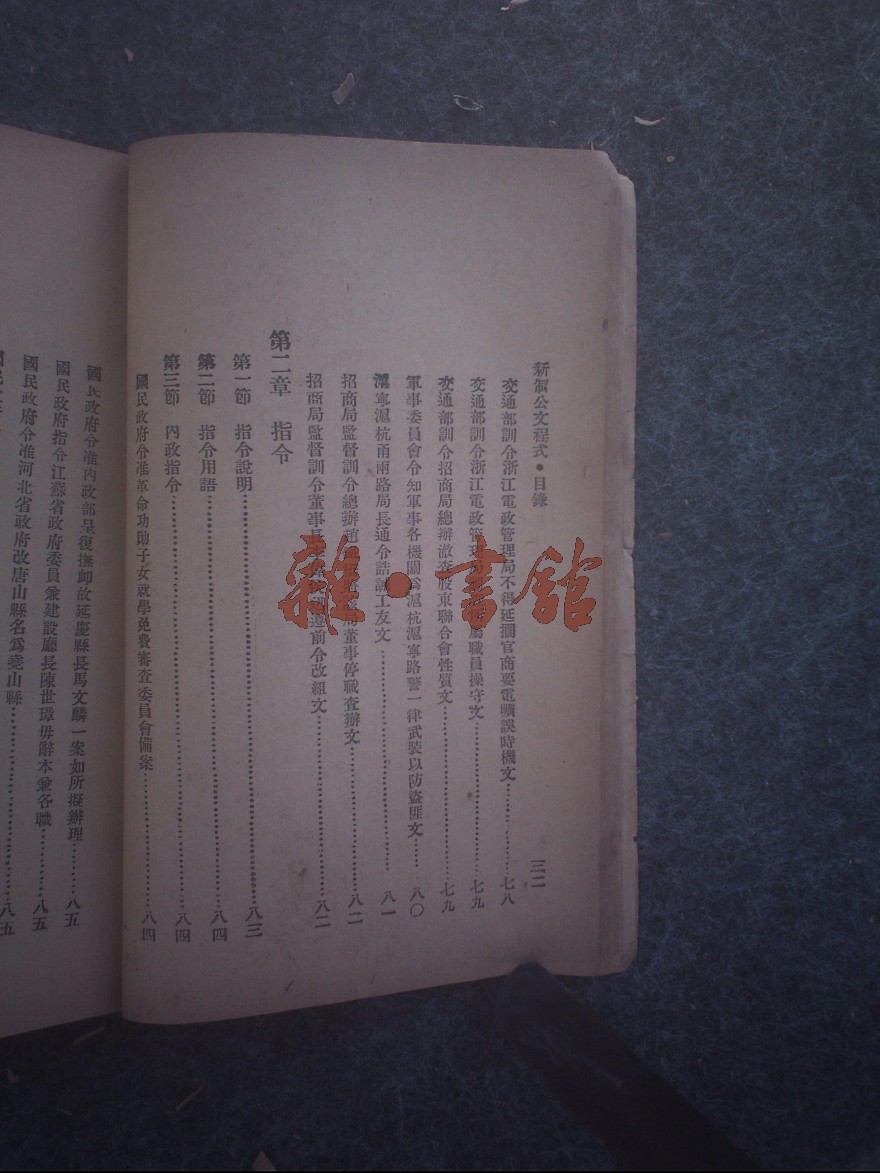 新制公文程式・目錄
三二
交通部訓令浙江電政管理局不得延擱官商要電曠誤時機文………七八
交通部訓令浙江電政管理屬職員操守文………七九
交通部訓令招商局總辦澈查股東聯合會性質文………七九
軍事委員會令知軍事各機關滬杭滬寧路警一律武裝以防盜匪文……八〇
滬寧滬杭甬兩路局長通令誥誡工友文………八一
招商局監督訓令總辦趙董事停職查辦文………八二
招商局監督訓令董事長遵前令改組文………八二
第二章 指令
第一節 指令說明………八三
第二節 指令用語………八四
第三節 內政指令………八四
國民政府令准革命功勛子女就學免費審查委員會備案………八四
國民政府令准內政部呈復撫卹故延慶縣長馬文麟一案如所擬辦理………八五
國民政府指令江蘇省政府委員兼建設廳長陳世璋毋辭本兼各職………八五
國民政府令准河北省政府改唐山縣名爲堯山縣………八五
八五
雜・書館